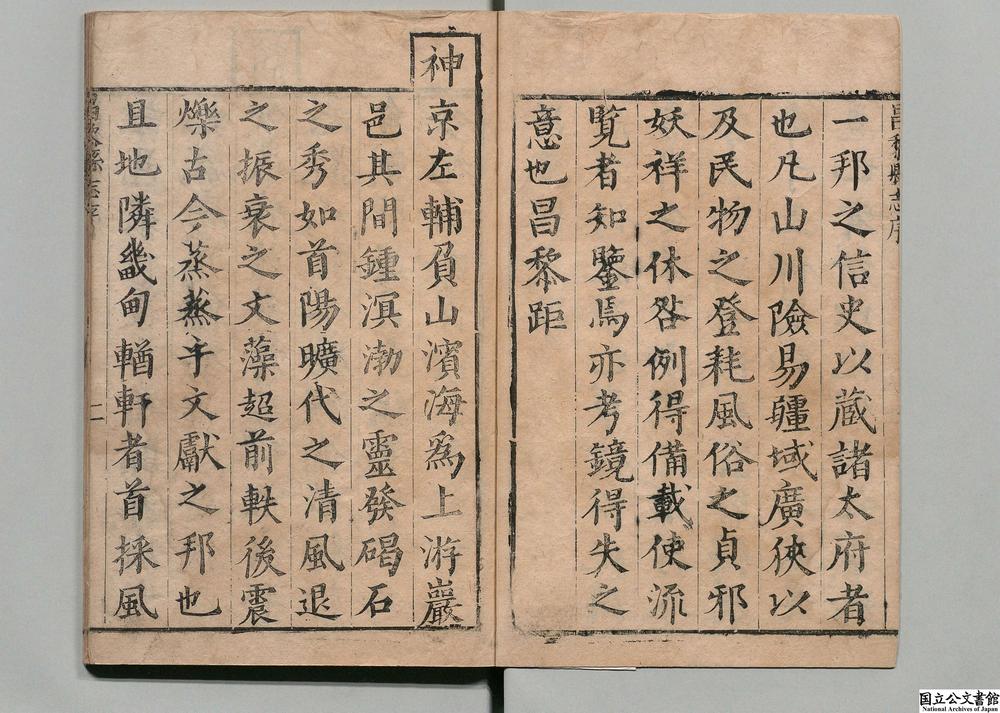 一邦之信史以藏諸太府者
也凡山川險易疆域廣俠以
及民物之登耗風俗之貞邪
妖祥之休咎例得備載使流
覽者知鑒焉亦考鏡得失之
意也昌黎距
神京左輔負山濱海為上游巖
邑其間鍾溟渤之靈發碣石
之秀如首陽曠代之清風退
之振衰之文藻超前軼後震
爍古今蒸蒸乎文獻之邦也
且地隣畿甸輶軒者首採風
昌黎縣志序
二
国立公文書館
National Archives of Japan